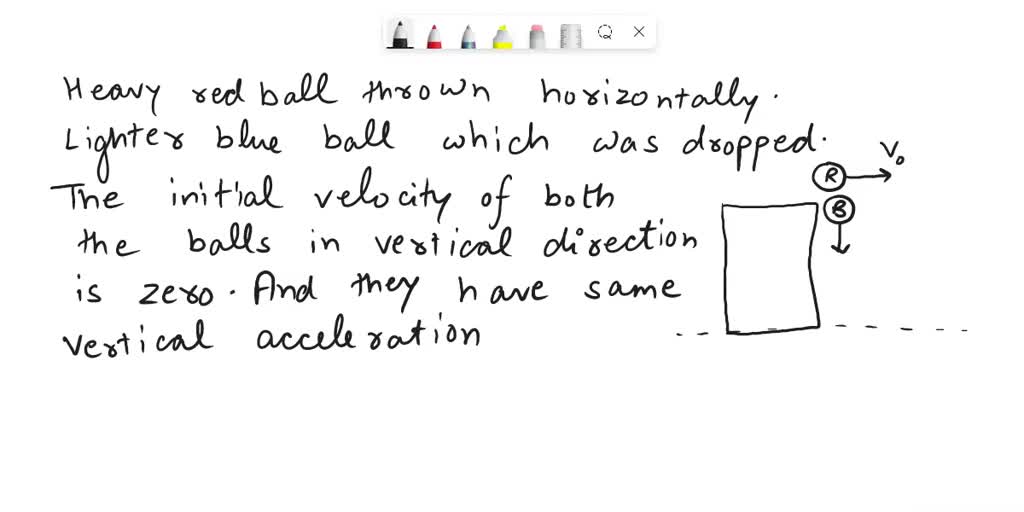 Heavy red ball thrown horizontally.
Lighter blue ball which was dropped.
The initial velocity of both
the balls in vertical direction
is zero. And they have same
vertical acceleration
R
V₀
B